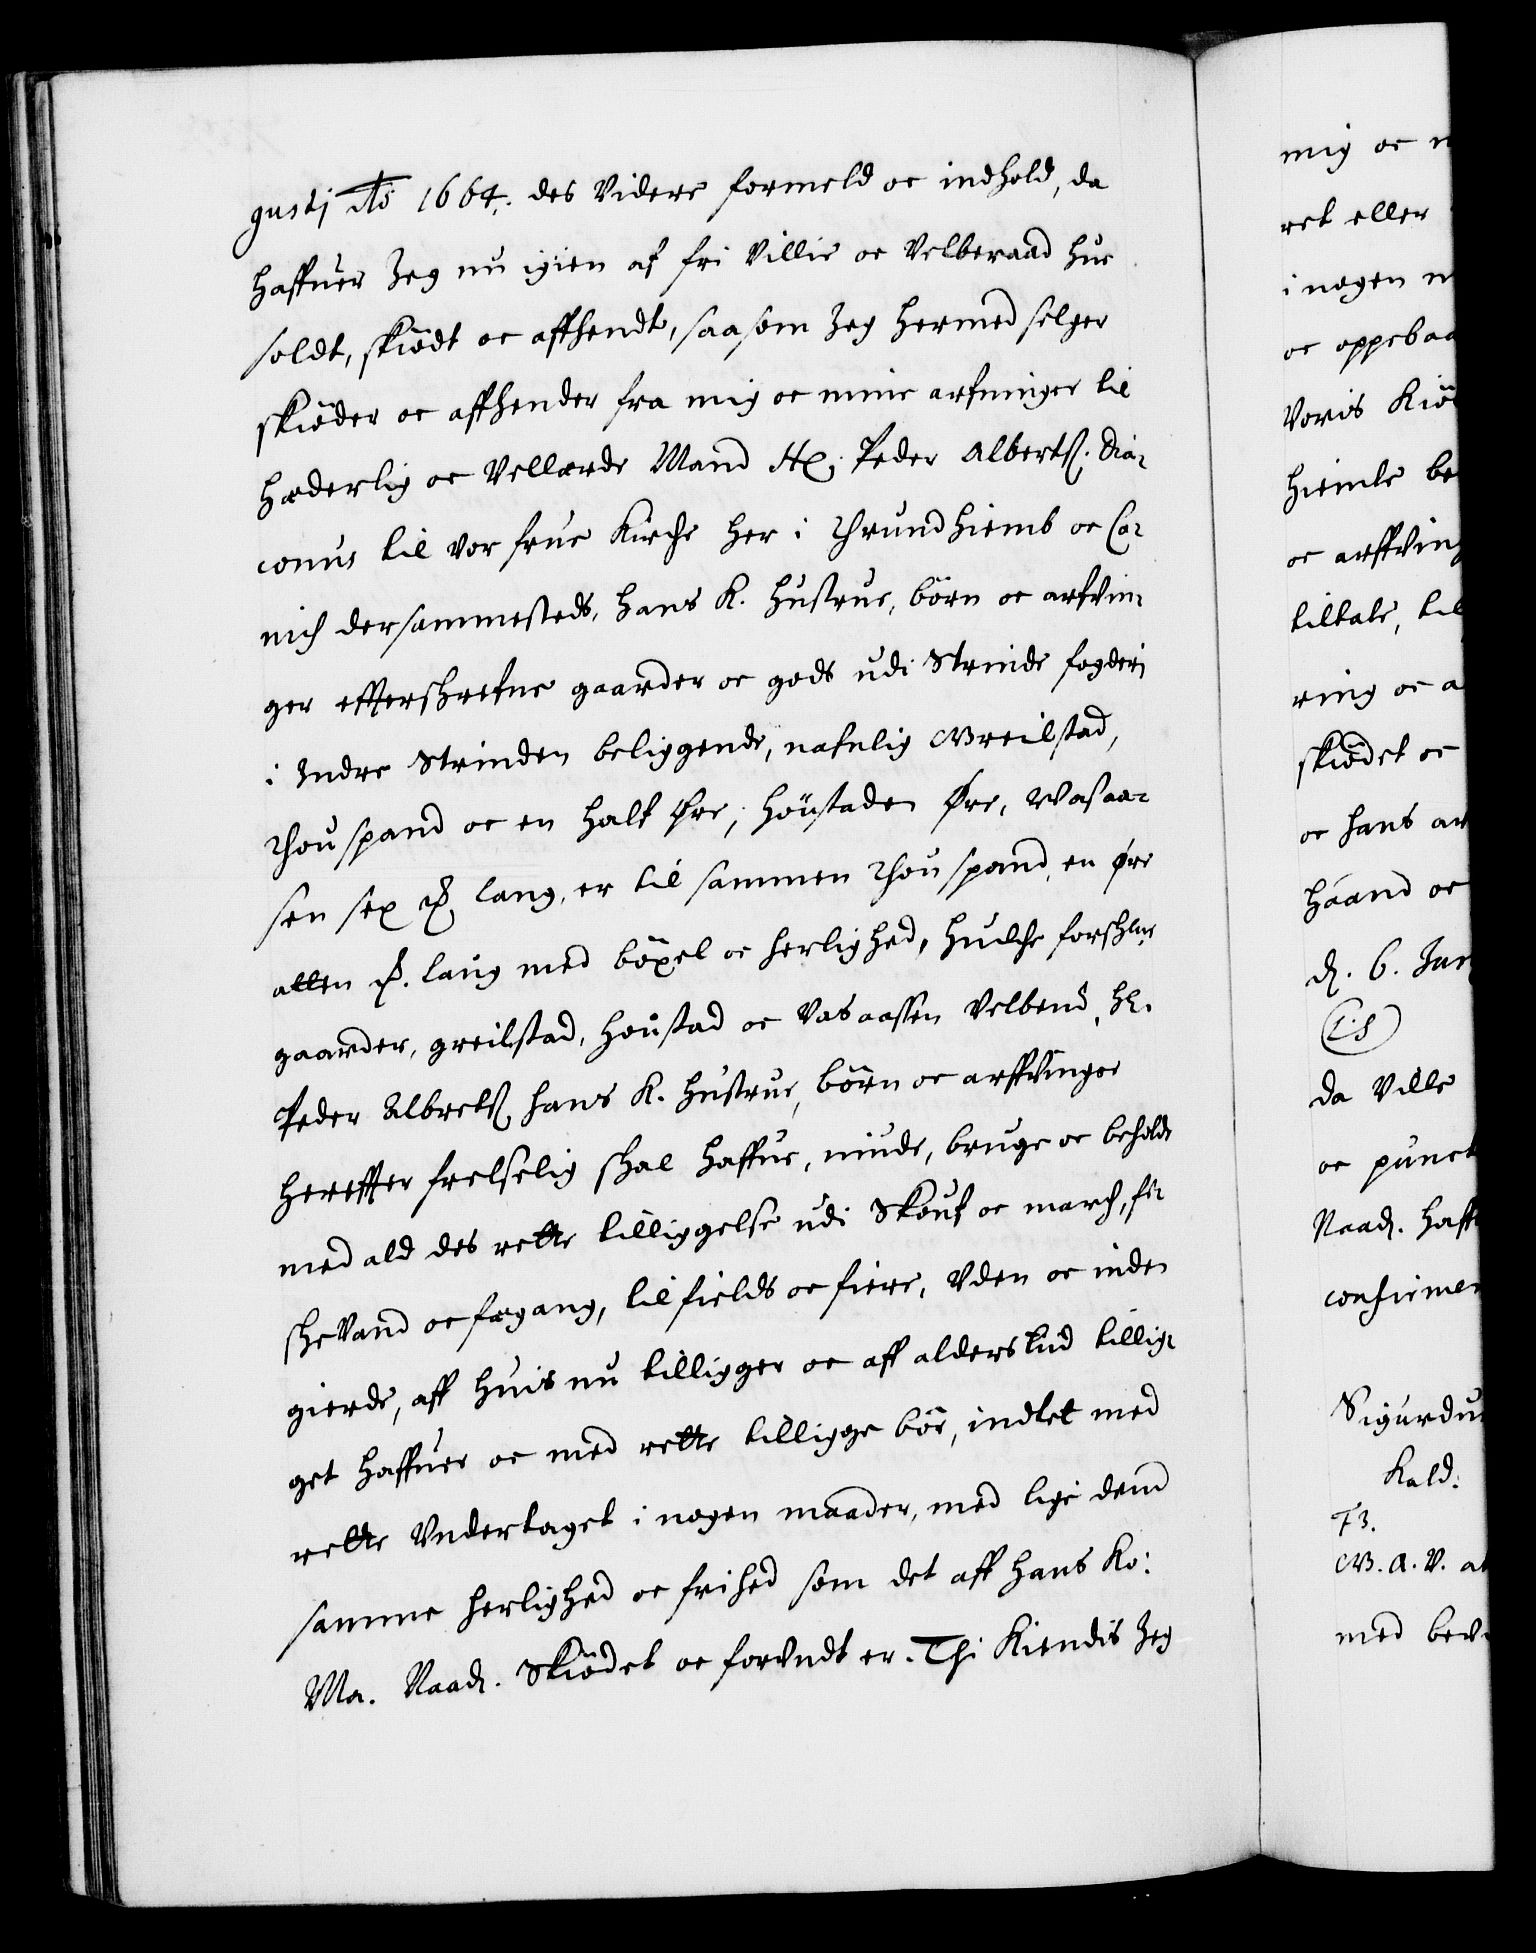 gustj Ao 1664. des Videre formeld oc indhold, da
haffuer Jeg nu igien af fri Villie oc Velberaad hue
soldt, skiödt oc affhendt, saasom Jeg hermed selger
skiöder oc affhender fra mig oc mine arfuinger til
hæderlig oc Vellærde Mand Hr. Peder Alberts. Dia-
conus til vor frue Kirche her i Thrundhiemb oc Ca-
nich dersammesteds, hans K. hustrue, börn oc arfvin-
ger effterschrefne gaarder oc gods udi Strinde fogderi
i Indre Strinden beliggende, nafnlig Greilstad,
Thou spand oc en half Øre, Höustaden Øre, Wasaa-
sen sex lang, er til sammen Thou spand, en øre
atten lang med böxel oc herlighed, huilche forschne
gaarder, greilstad, Houstad oc Vasaassen Velbend. Hr.
Peder Albrets hans K. hustrue, börn oc arffvinger
hereffter frelselig schal haffue, niude, bruge oc beholde
med ald des rette tilliggelse udi Skouf oc march, fi-
sche Vand oc fægang, til fields oc fiere, Vden oc inden
gierde, aff huis nu tilligger oc aff alders tiid tillig-
get haffuer oc med rette tilligge bör, indtet med
rette Vndertaget i nogen maader, med lige dend
samme herlighed oc frihed som det aff hans Ko:
Ma. Naad. Skiödet oc forundt er. Thi Kiendis Jeg
mig oc
ret eller
i nogen
oc oppebaa
Voris Kiö
hiemle be
oc arffving
tiltale, til
ring oc a
skiödet oc
oc hans ar
haand oc
d. 6. Jan
L.S
da Ville
oc punct
Naad. haff
confirmer
Sigurdu
Kald.
73.
G. A. V. at
med bev